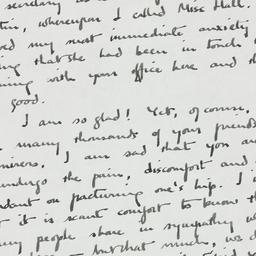 secretary
, whereupon I called Miss Hall.
my most immediate anxiety
that she had been in touch
with your office here and th
good.
I am so glad! Yet, of course,
many thousands of your friends
I am sad that you are
undergo the pain, discomfort and
on fracturing one's hip. I
it is scant comfort to know th
people share in sympathy w
but that much, we d